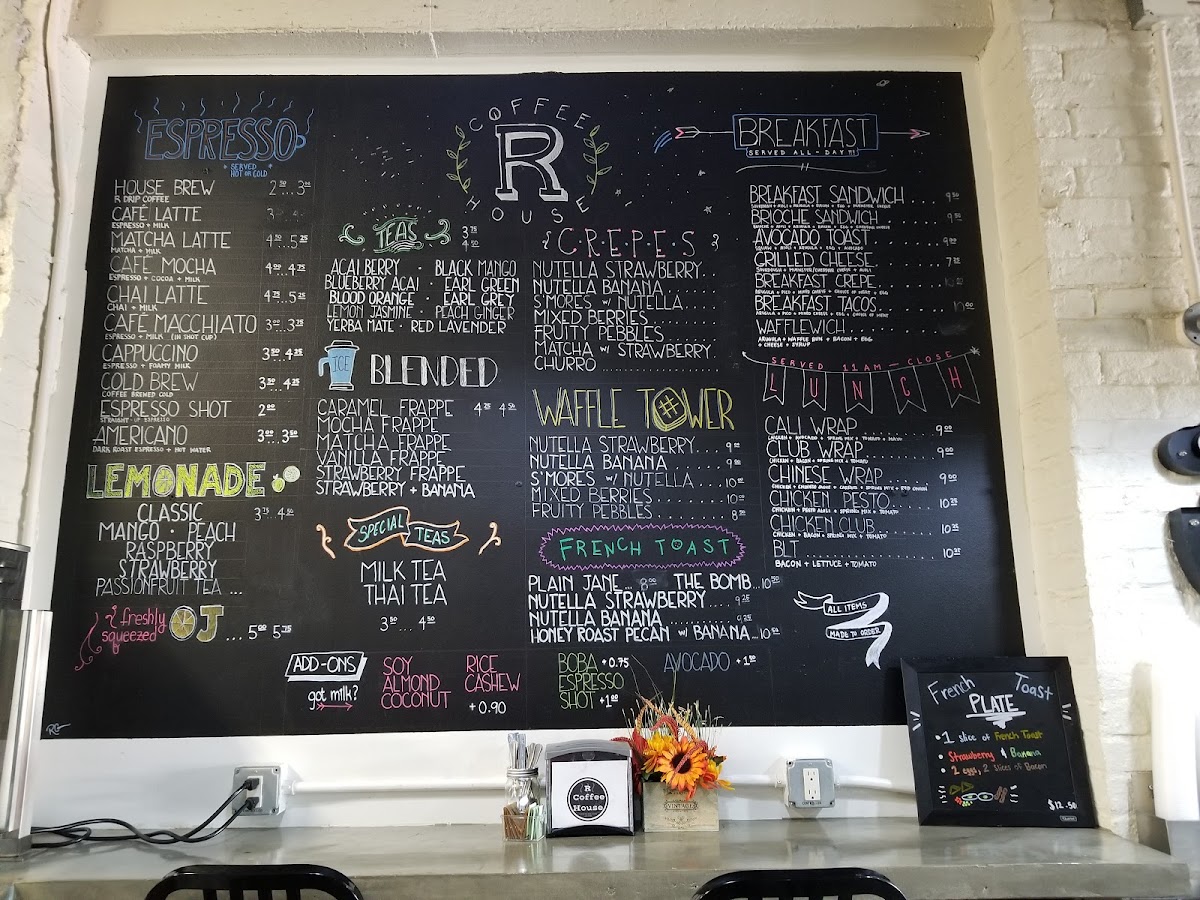 ESPRESSO
* SERVED *
HOT OR COLD
HOUSE BREW 2.50...3.00
R DRIP COFFEE
CAFÉ LATTE
ESPRESSO + MILK
MATCHA LATTE 4.50..5.25
MATCHA + MILK
CAFÉ MOCHA 4.00..4.75
ESPRESSO + COCOA + MILK
CHAI LATTE 4.75..5.25
CHAI + MILK
CAFÉ MACCHIATO 3.00..3.75
ESPRESSO + MILK (IN SHOT CUP)
CAPPUCCINO 3.50..4.25
ESPRESSO + FOAMY MILK
COLD BREW 3.50..4.25
COFFEE BREWED COLD
ESPRESSO SHOT 2.00
STRAIGHT-UP ESPRESSO
AMERICANO 3.00..3.50
DARK ROAST ESPRESSO + HOT WATER
LEMONADE
CLASSIC 3.75..4.50
MANGO · PEACH
RASPBERRY
STRAWBERRY
PASSIONFRUIT TEA ...
freshly
squeezed
OJ ... 5.00 5.75
COFFEE
R
HOUSE
TEAS 3.75
4.50
ACAI BERRY · BLACK MANGO
BLUEBERRY ACAI · EARL GREEN
BLOOD ORANGE · EARL GREY
LEMON JASMINE · PEACH GINGER
YERBA MATE · RED LAVENDER
ICE BLENDED
CARAMEL FRAPPE 4.25 4.50
MOCHA FRAPPE
MATCHA FRAPPE
VANILLA FRAPPE
STRAWBERRY FRAPPE
STRAWBERRY + BANANA
SPECIAL TEAS
MILK TEA
THAI TEA
3.50....4.50
C·R·E·P·E·S
NUTELLA STRAWBERRY...
NUTELLA BANANA
S'MORES w/ NUTELLA
MIXED BERRIES
FRUITY PEBBLES
MATCHA w/ STRAWBERRY
CHURRO
WAFFLE TOWER
NUTELLA STRAWBERRY.... 9.00
NUTELLA BANANA ..... 9.00
S'MORES w/ NUTELLA .... 10.00
MIXED BERRIES ...... 10.00
FRUITY PEBBLES...... 8.50
FRENCH TOAST
PLAIN JANE... 8.00 THE BOMB...10.50
NUTELLA STRAWBERRY.... 9.25
NUTELLA BANANA 9.25
HONEY ROAST PECAN w/ BANANA...10.50
BREAKFAST
SERVED ALL-DAY!!!
BREAKFAST SANDWICH .... 9.50
BRIOCHE SANDWICH 9.50
AVOCADO TOAST 9.00
GRILLED CHEESE..... 7.25
BREAKFAST CREPE
BREAKFAST TACOS
WAFFLEWICH
ARUGULA + WAFFLE BUN + BACON + EGG
+ CHEESE + SYRUP
SERVED 11AM — CLOSE
LUNCH
CALI WRAP 9.00
CHICKEN + AVOCADO + SPRING MIX + TOMATO + MAYO
CLUB WRAP 9.00
CHICKEN + BACON + SPRING MIX + TOMATO
CHINESE WRAP 9.00
CHICKEN PESTO 10.25
CHICKEN + PESTO AIOLI + SPRING MIX + TOMATO
CHICKEN CLUB 10.25
CHICKEN + BACON + SPRING MIX + TOMATO
BLT 10.25
BACON + LETTUCE + TOMATO
ALL ITEMS
MADE TO ORDER
ADD-ONS
got milk?
SOY
ALMOND
COCONUT
RICE
CASHEW
+ 0.90
BOBA + 0.75
ESPRESSO
SHOT +1.00
AVOCADO + 1.50
R
Coffee
House
VINTAGE
French Toast
PLATE
• 1 slice of French Toast
• Strawberry & Banana
• 2 eggs, 2 slices of Bacon
$12.50